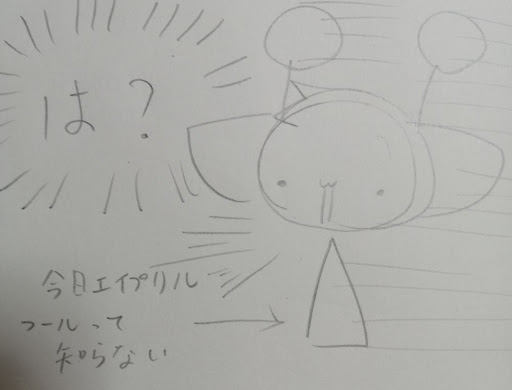 は?
今日エイプリル
フールって
知らない